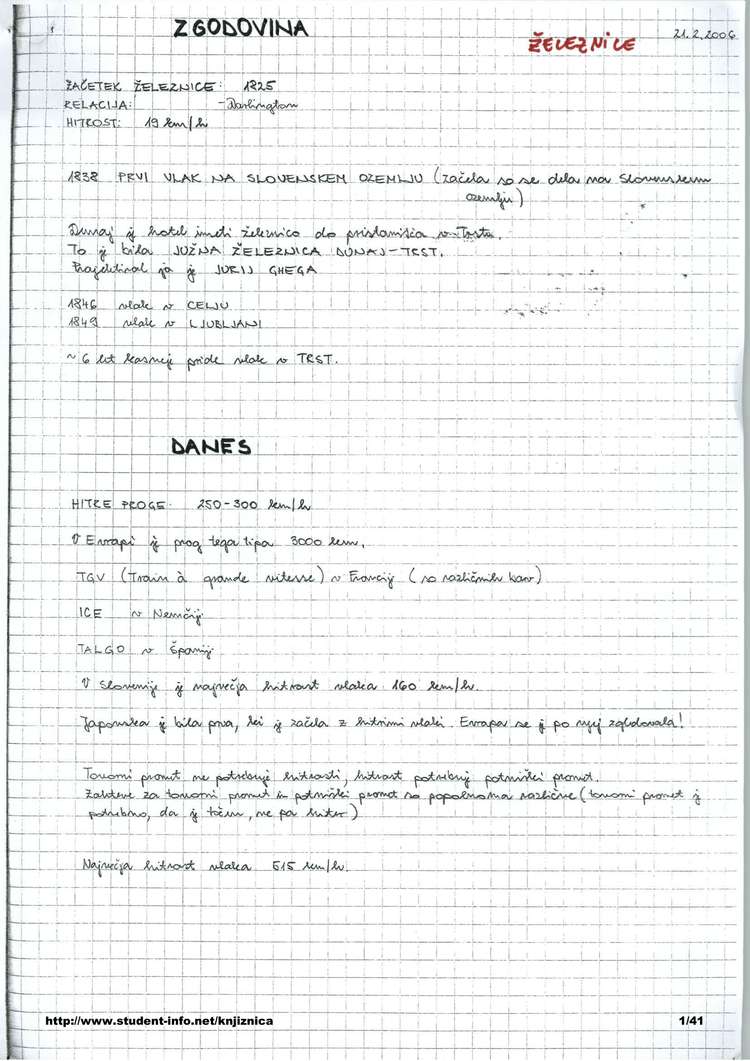 ZGODOVINA
ŽELEZNICE
21.2.2006
ZAČETEK ŽELEZNICE: 1825
RELACIJA: -Darlington
HITROST: 19 km/h
1838 PRVI VLAK NA SLOVENSKEM OZEMLJU (začela so se dela na slovenskem
ozemlju)
Dunaj je hotel imeti železnico do pristanišča v Trstu.
To je bila JUŽNA ŽELEZNICA DUNAJ-TRST.
Projektiral jo je JURIJ GHEGA
1846 vlak v CELJU
1849 vlak v LJUBLJANI
~ 6 let kasneje pride vlak v TRST.
DANES
HITRE PROGE: 250-300 km/h
V Evropi je prog tega tipa 3000 km.
TGV (Train à grande vitesse) v Franciji (so različnih barv)
ICE v Nemčiji
TALGO v Španiji
V Sloveniji je največja hitrost vlaka 160 km/h.
Japonska je bila prva, ki je začela z hitrimi vlaki. Evropa se je po njej zgledovala!
Tovorni promet ne potrebuje hitrosti, hitrost potrebuje potniški promet.
Zahteve za tovorni promet in potniški promet so popolnoma različne (tovorni promet je
potrebno, da je točen, ne pa hiter)
Največja hitrost vlaka 515 km/h.
http://www.student-info.net/knjiznica
1/41